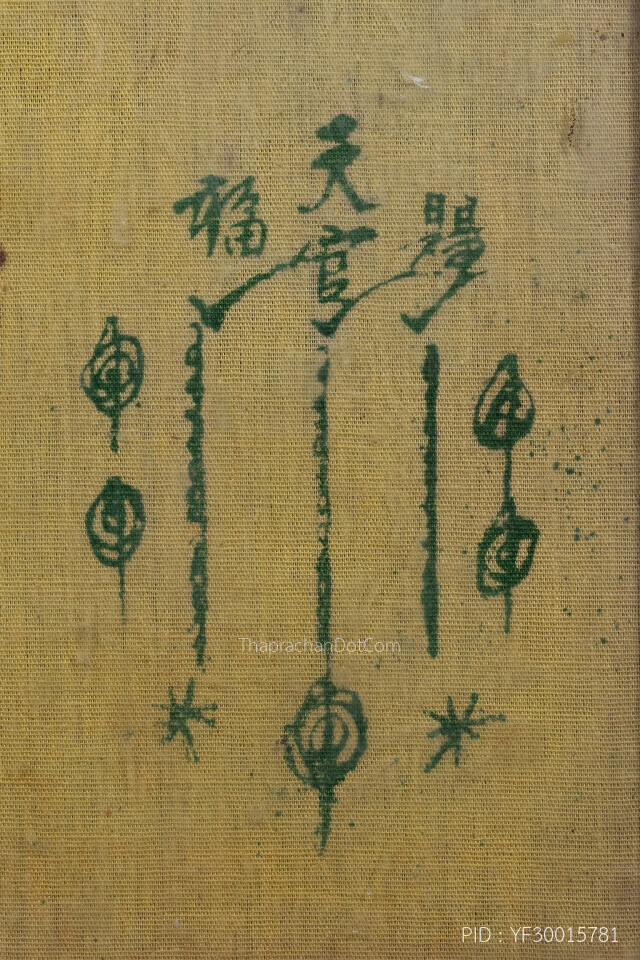 天官
賜
福
ThaprachanDotCom
PID : YF30015781